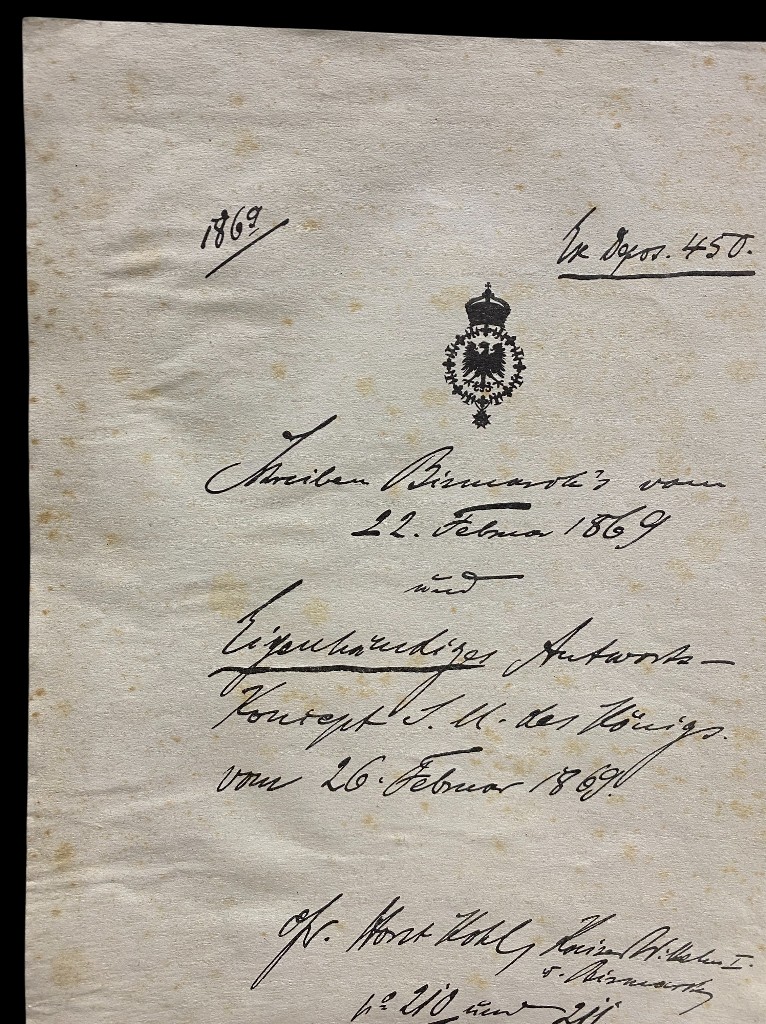 1869
Ex Depos. 450.
Schreiben Bismarck's vom
22. Februar 1869
und
Eigenhändiges Antworts-
Konzept S. M. des Königs.
vom 26. Februar 1869.
cfr. Horst Kohl, Kaiser Wilhelm I.
u. Bismarck,
No 210 und 211